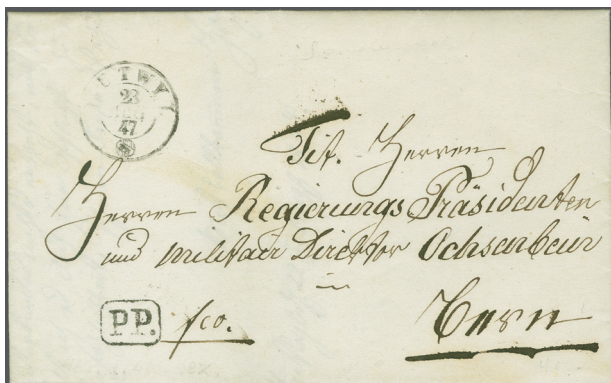 23
47
Tit. Herren
Herren Regierungs Präsidenten
und militair Direktor Ochsenbein
in
Bern
PP. fco.